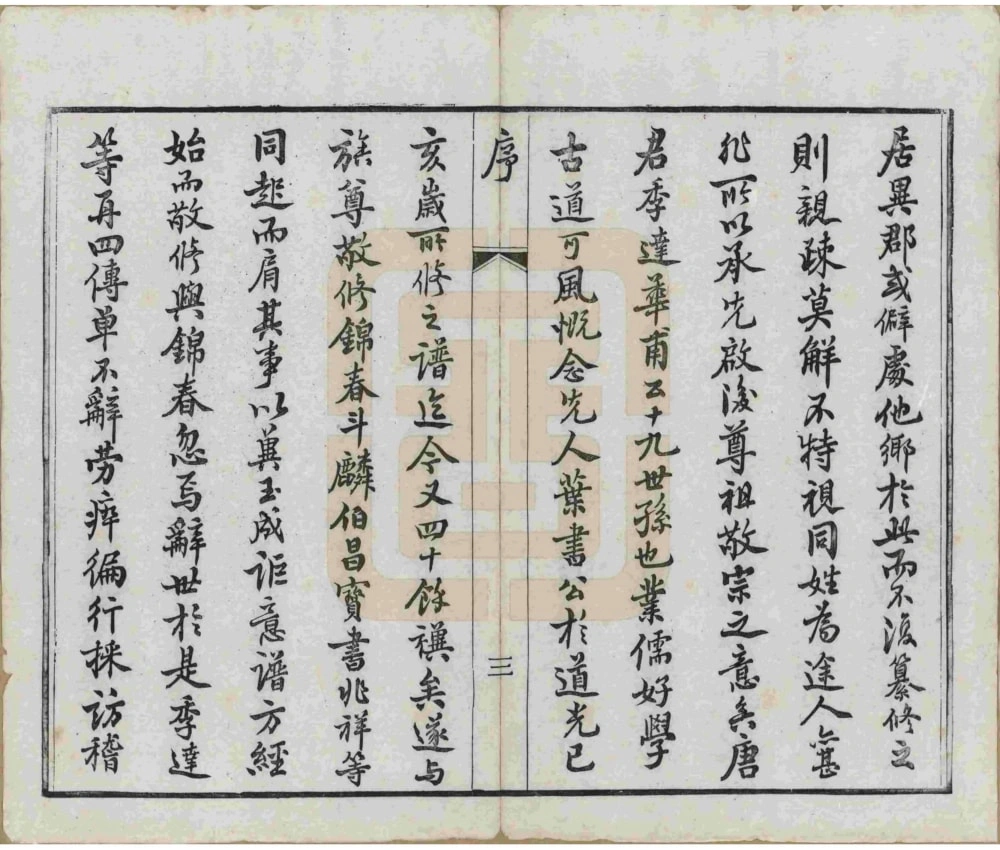 居異郡或僻處他鄉於此而不復纂修之
則親疎莫解不特視同姓為途人甚
非所以承先啟後尊祖敬宗之意矣唐
君季達華甫公十九世孫也業儒好學
古道可風慨念先人葉書公於道光己
序
三
亥歲所修之譜迄今又四十餘禩矣遂与
族尊敬修錦春斗麟伯昌寶書兆祥等
同起而肩其事以冀玉成詎意譜方經
始而敬修與錦春忽焉辭世於是季達
等再四傳单不辭劳瘁徧行採訪稽